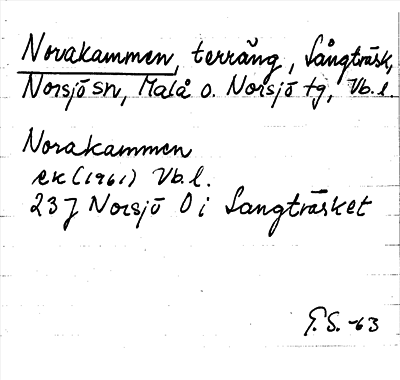 Norakammen, terräng, Långträsk,
Norsjö sn, Malå o. Norsjö tg, Vb. l.
Norakammen
ek (1961) Vb. l.
23 J Norsjö O i Langträsket
G.S. -63